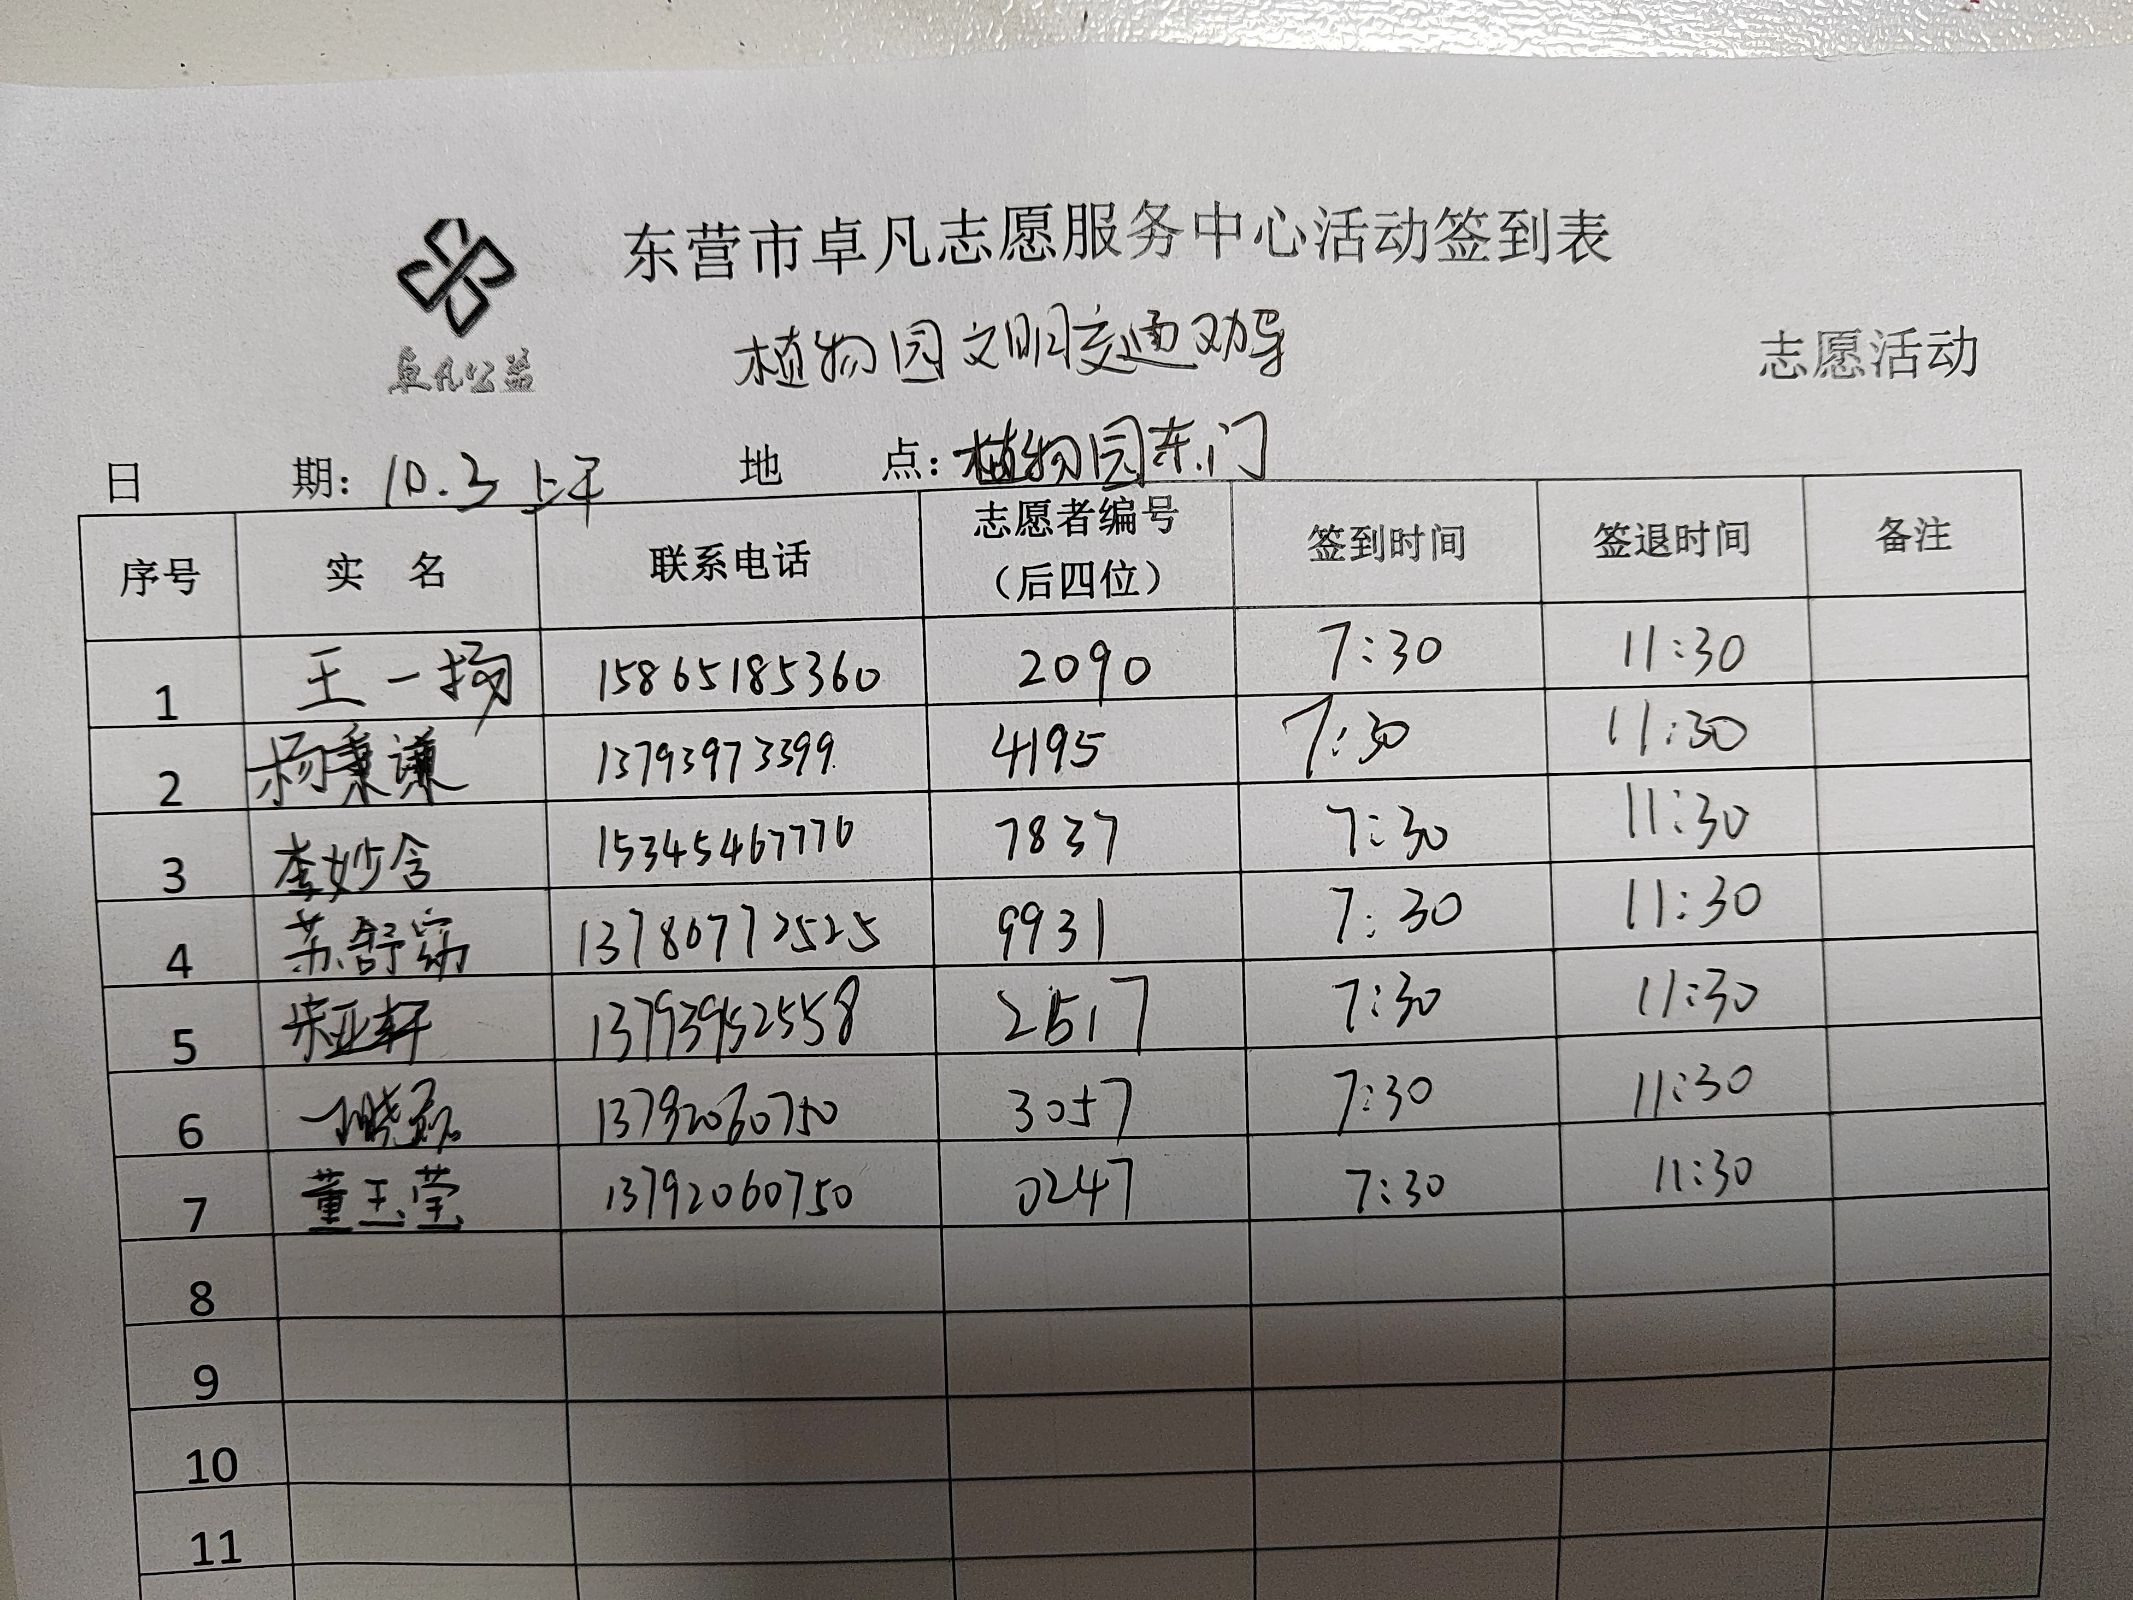 东营市卓凡志愿服务中心活动签到表
卓凡公益
植物园文明交通劝导 志愿活动
日 期: 10.3 上午 地 点: 植物园东门
序号 实 名 联系电话 志愿者编号（后四位） 签到时间 签退时间 备注
1 王一扬 15865185360 2090 7:30 11:30
2 杨秉谦 13793973399 4195 7:30 11:30
3 李妙含 15345467770 7837 7:30 11:30
4 苏舒窈 13780772525 9931 7:30 11:30
5 宋亚轩 13793952558 2517 7:30 11:30
6 13792060750 3057 7:30 11:30
7 董玉莹 13792060750 0247 7:30 11:30
8
9
10
11